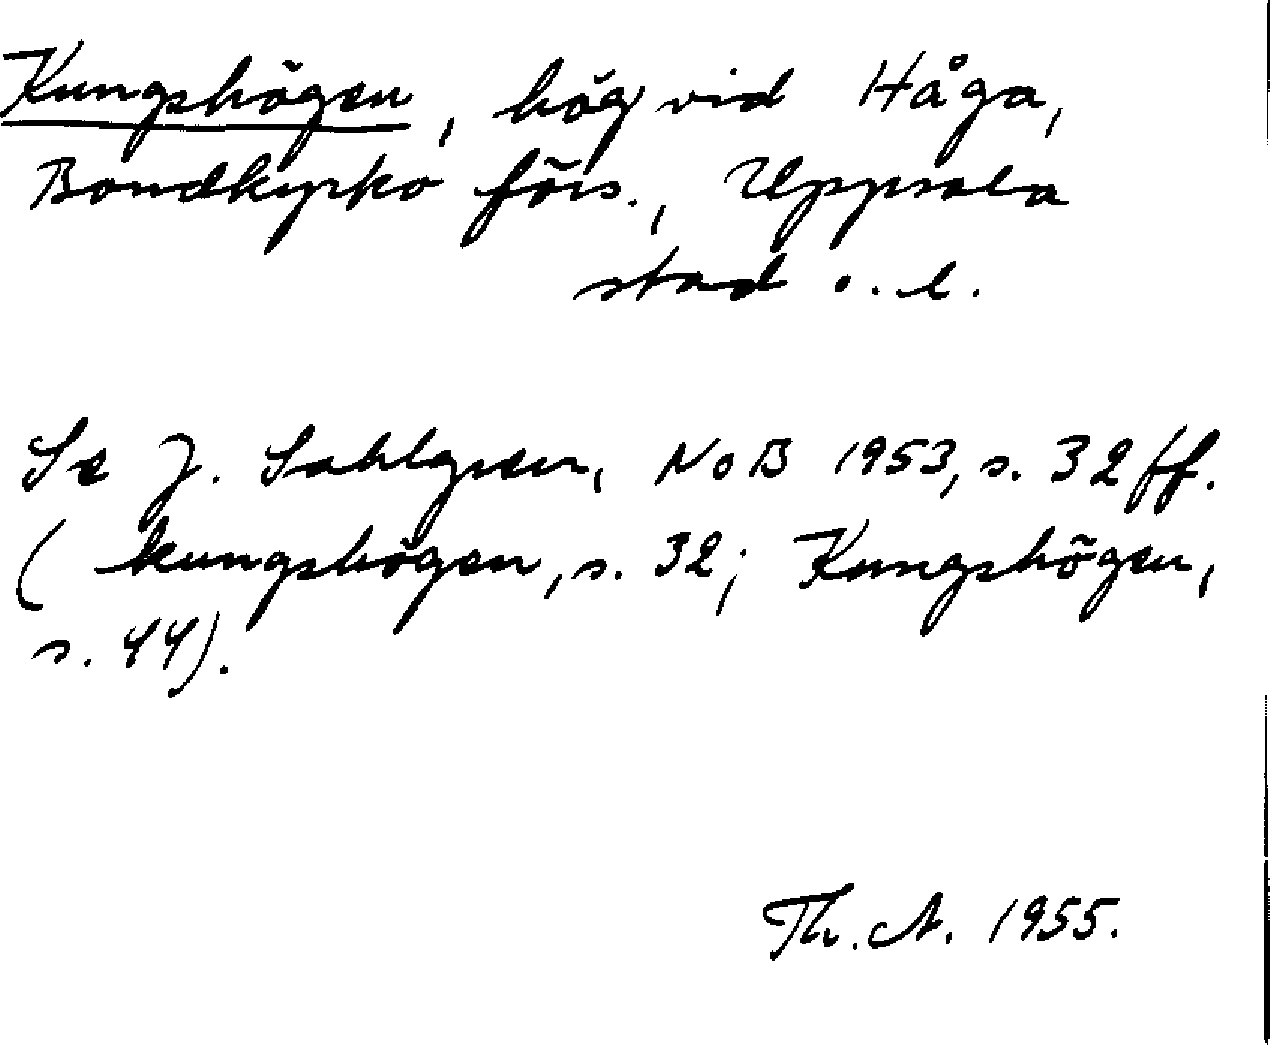 Kungshögen, hög vid Håga,
Bondkyrko förs., Uppsala
stad o. l.
Se J. Sahlgren, NoB 1953, s. 32 ff.
(kungshögen, s. 32; Kungshögen,
s. 44).
Th. A. 1955.